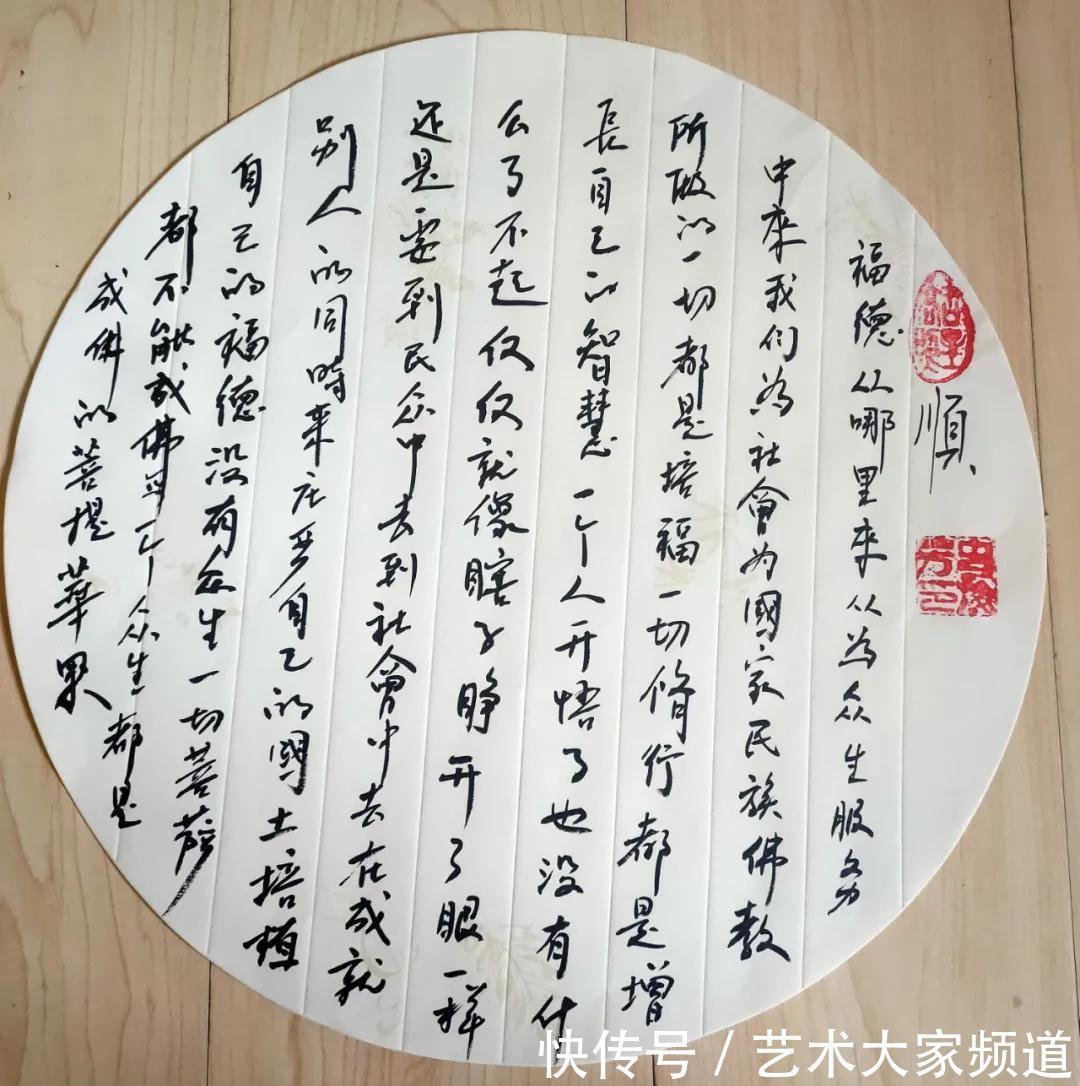 順
福德从哪里来从為众生服务
中來我们為社會为國家民族佛教
所做的一切都是培福一切脩行都是增
長自己的智慧一个人开悟了也没有什
么了不起仅仅就像瞎子睁开了眼一样
还是要到民众中去到社會中去在成就
别人的同時来庄严自己的國土培植
自己的福德没有众生一切菩萨
都不能成佛每一个众生都是
成佛的菩提華果
快传号／艺术大家频道